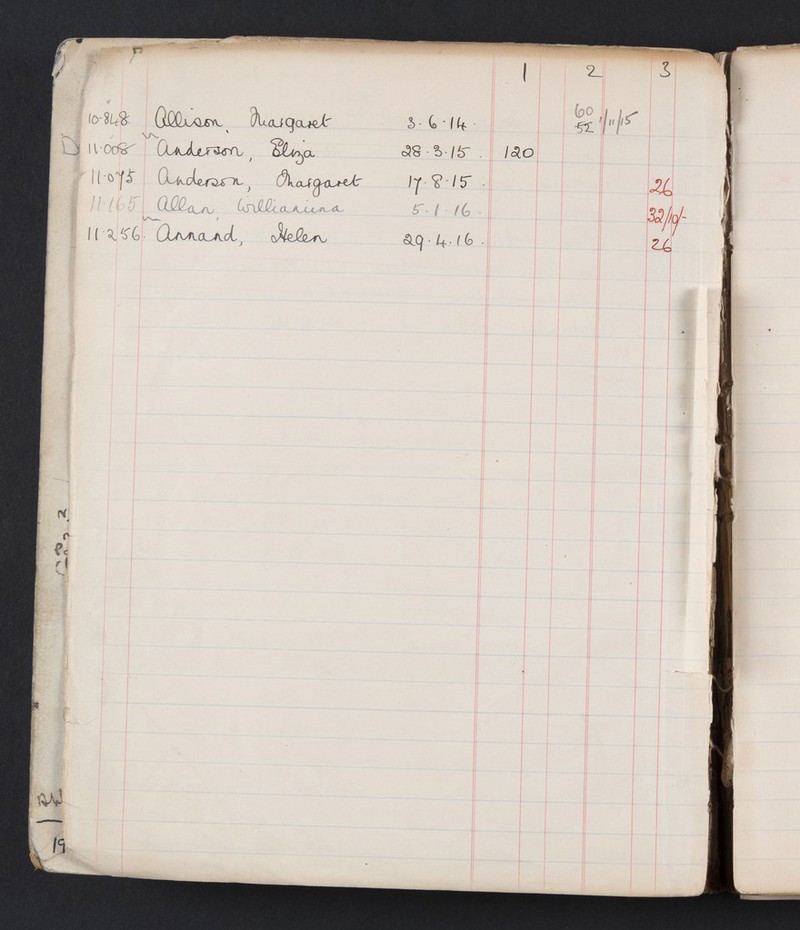 1 2 3
10.848 Allison, Margaret 3.6.14. 60 52 1/11/15
D 11.008 Anderson, Eliza 28.3.15. 120
11.075 Anderson, Margaret 17.8.15. 26
11.165 Allan, Williamina 5.1.16. 32/10/-
11.256. Annand, Helen 29.4.16. 26
19